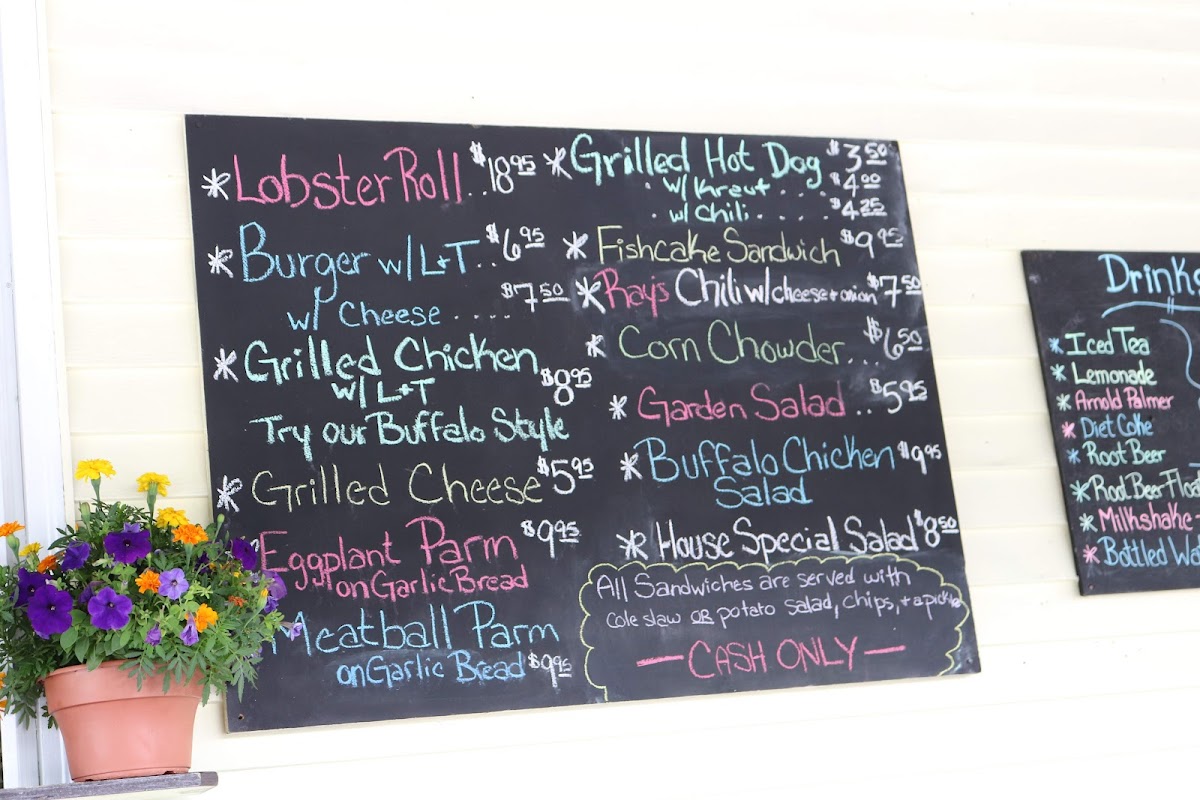 * Lobster Roll.. $18.95
* Burger w/ L+T.. $6.95
w/ Cheese .... $7.50
* Grilled Chicken
w/ L+T $8.95
Try our Buffalo Style
* Grilled Cheese $5.95
Eggplant Parm $9.95
on Garlic Bread
Meatball Parm
on Garlic Bread $9.95
* Grilled Hot Dog $3.50
. w/ Kraut .... $4.00
. w/ Chili .... $4.25
* Fishcake Sandwich $9.95
* Ray's Chili w/ cheese + onion $7.50
* Corn Chowder... $6.50
* Garden Salad.. $5.95
* Buffalo Chicken $9.95
Salad
* House Special Salad $8.50
All Sandwiches are served with
Cole slaw OR potato salad, chips, + a pickle
— CASH ONLY —
Drinks
* Iced Tea
* Lemonade
* Arnold Palmer
* Diet Coke
* Root Beer
* Root Beer Float
* Milkshake
* Bottled Wat